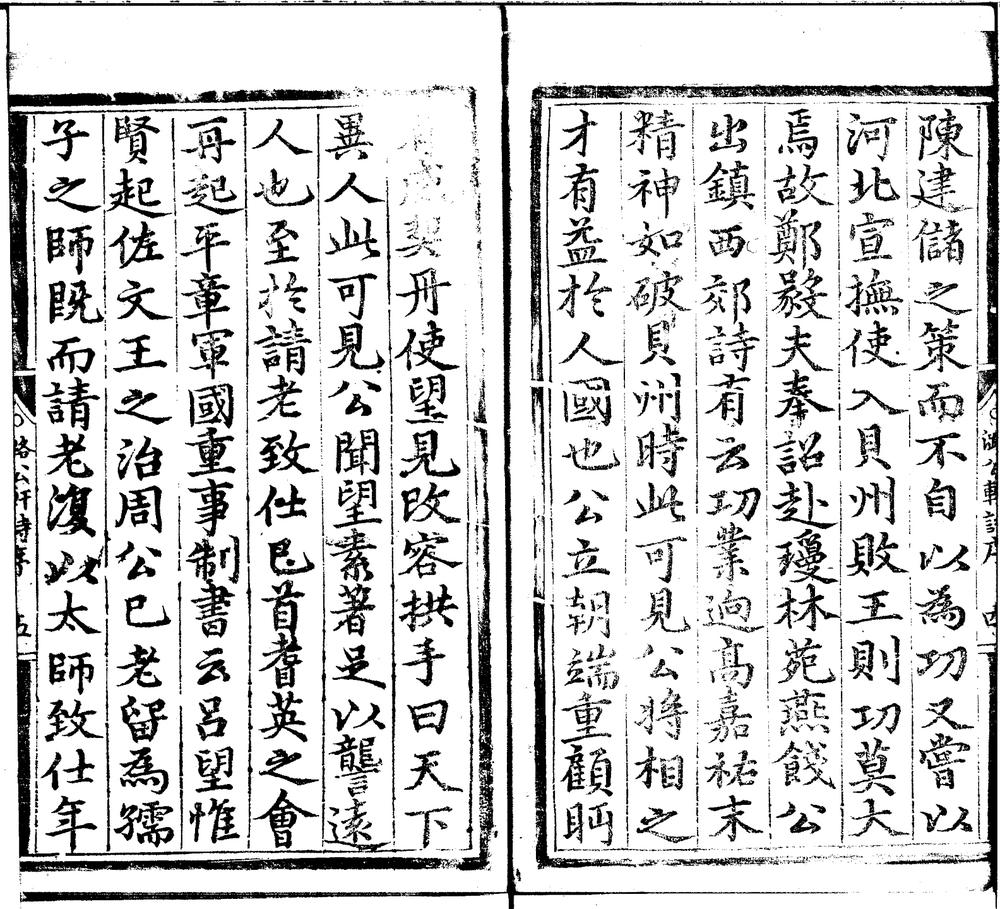 陳建儲之策而不自以為功又嘗以
河北宣撫使入貝州敗王則功莫大
焉故鄭毅夫奉詔赴瓊林苑燕餞公
出鎮西郊詩有云功業逈高嘉祐末
精神如破貝州時此可見公將相之
才有益於人國也公立朝端重顧眄
契丹使望見改容拱手曰天下
異人此可見公聞望素著足以讋遠
人也至於請老致仕邑首耆英之會
再起平章軍國重事制書云呂望惟
賢起佐文王之治周公已老留為孺
子之師既而請老復以太師致仕年
潞公軒詩序 五